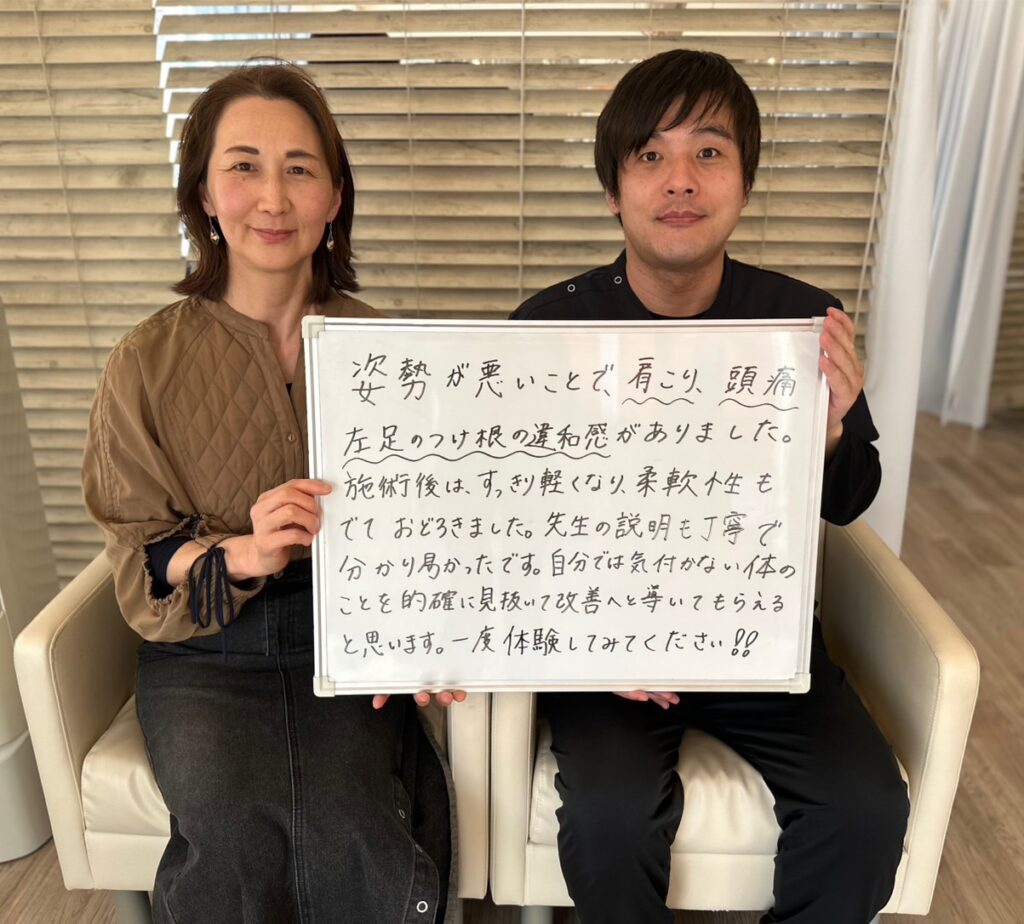 姿勢が悪いことで、肩こり、頭痛
左足のつけ根の違和感がありました。
施術後は、すっきり軽くなり、柔軟性も
でて おどろきました。先生の説明も丁寧で
分かり易かったです。自分では気付かない体の
ことを的確に見抜いて改善へと導いてもらえる
と思います。一度体験してみてください!!